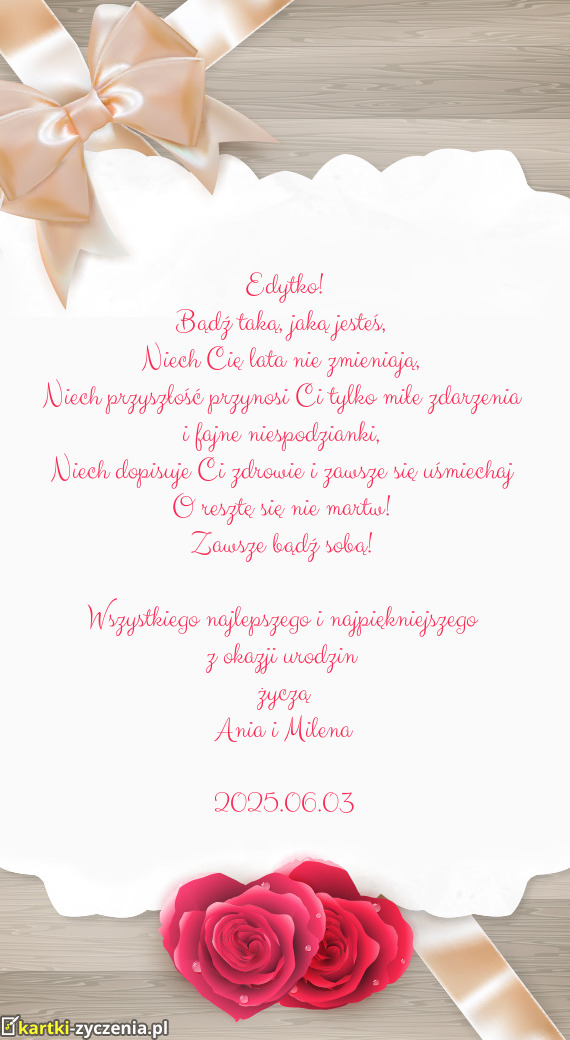 Edytko!
Bądź taką, jaką jesteś,
Niech Cię lata nie zmieniają,
Niech przyszłość przynosi Ci tylko miłe zdarzenia
i fajne niespodzianki,
Niech dopisuje Ci zdrowie i zawsze się uśmiechaj
O resztę się nie martw!
Zawsze bądź sobą!
Wszystkiego najlepszego i najpiękniejszego
z okazji urodzin
życzą
Ania i Milena
2025.06.03
kartki-zyczenia.pl